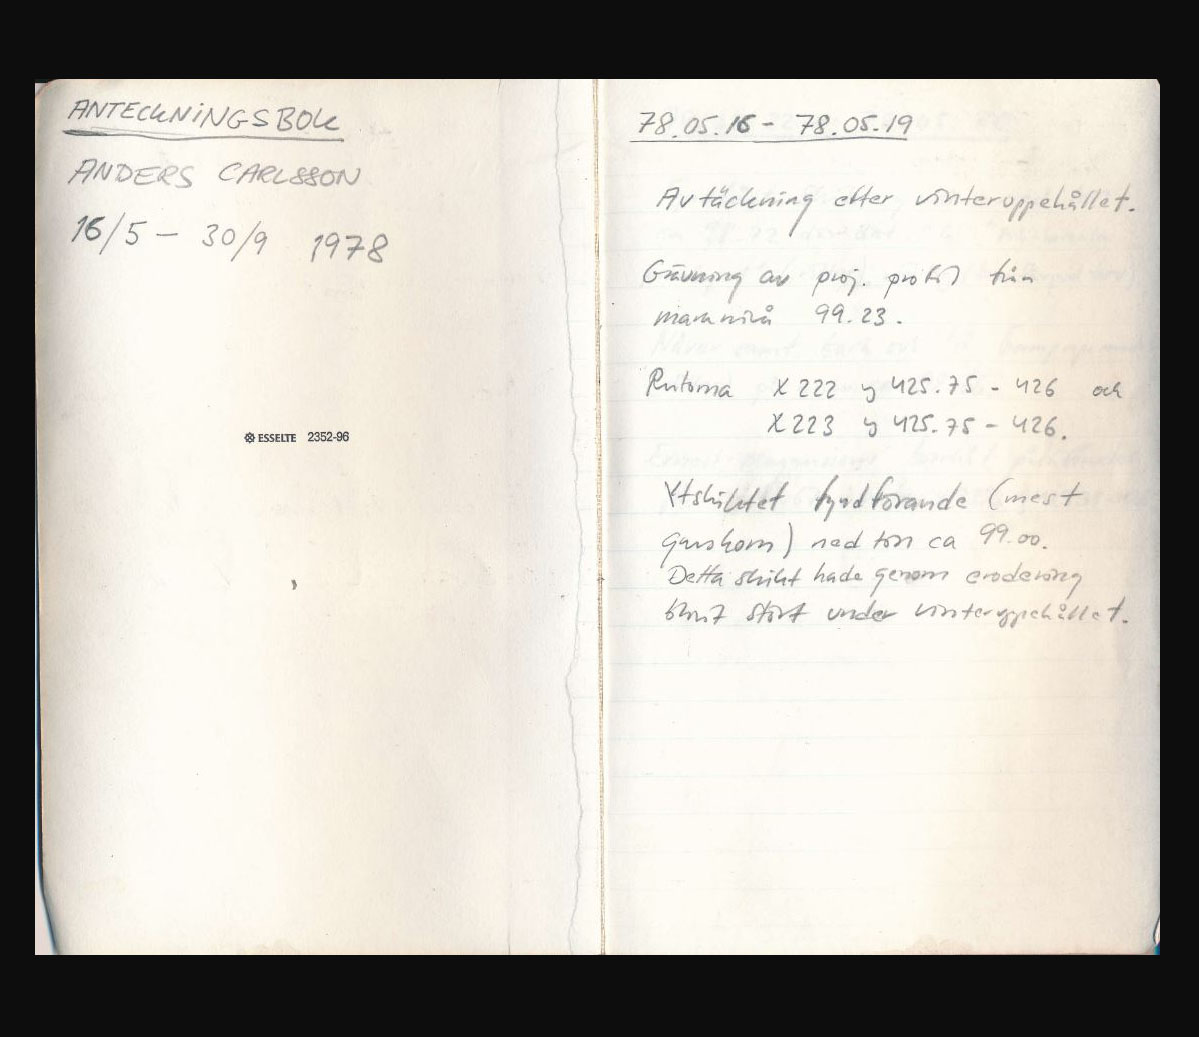 ANTECKNINGSBOK
ANDERS CARLSSON
16/5 – 30/9 1978
ESSELTE 2352-96
78.05.16 – 78.05.19
Avtäckning efter vinteruppehållet.
Grävning av proj. profil från
marknivå 99.23.
Rutorna X 222 y 425.75 – 426 och
X 223 y 425.75 – 426.
Ytskiktet fyndförande (mest
) ned till ca 99.00.
Detta skikt hade genom erodering
blivit stört under vinteruppehållet.